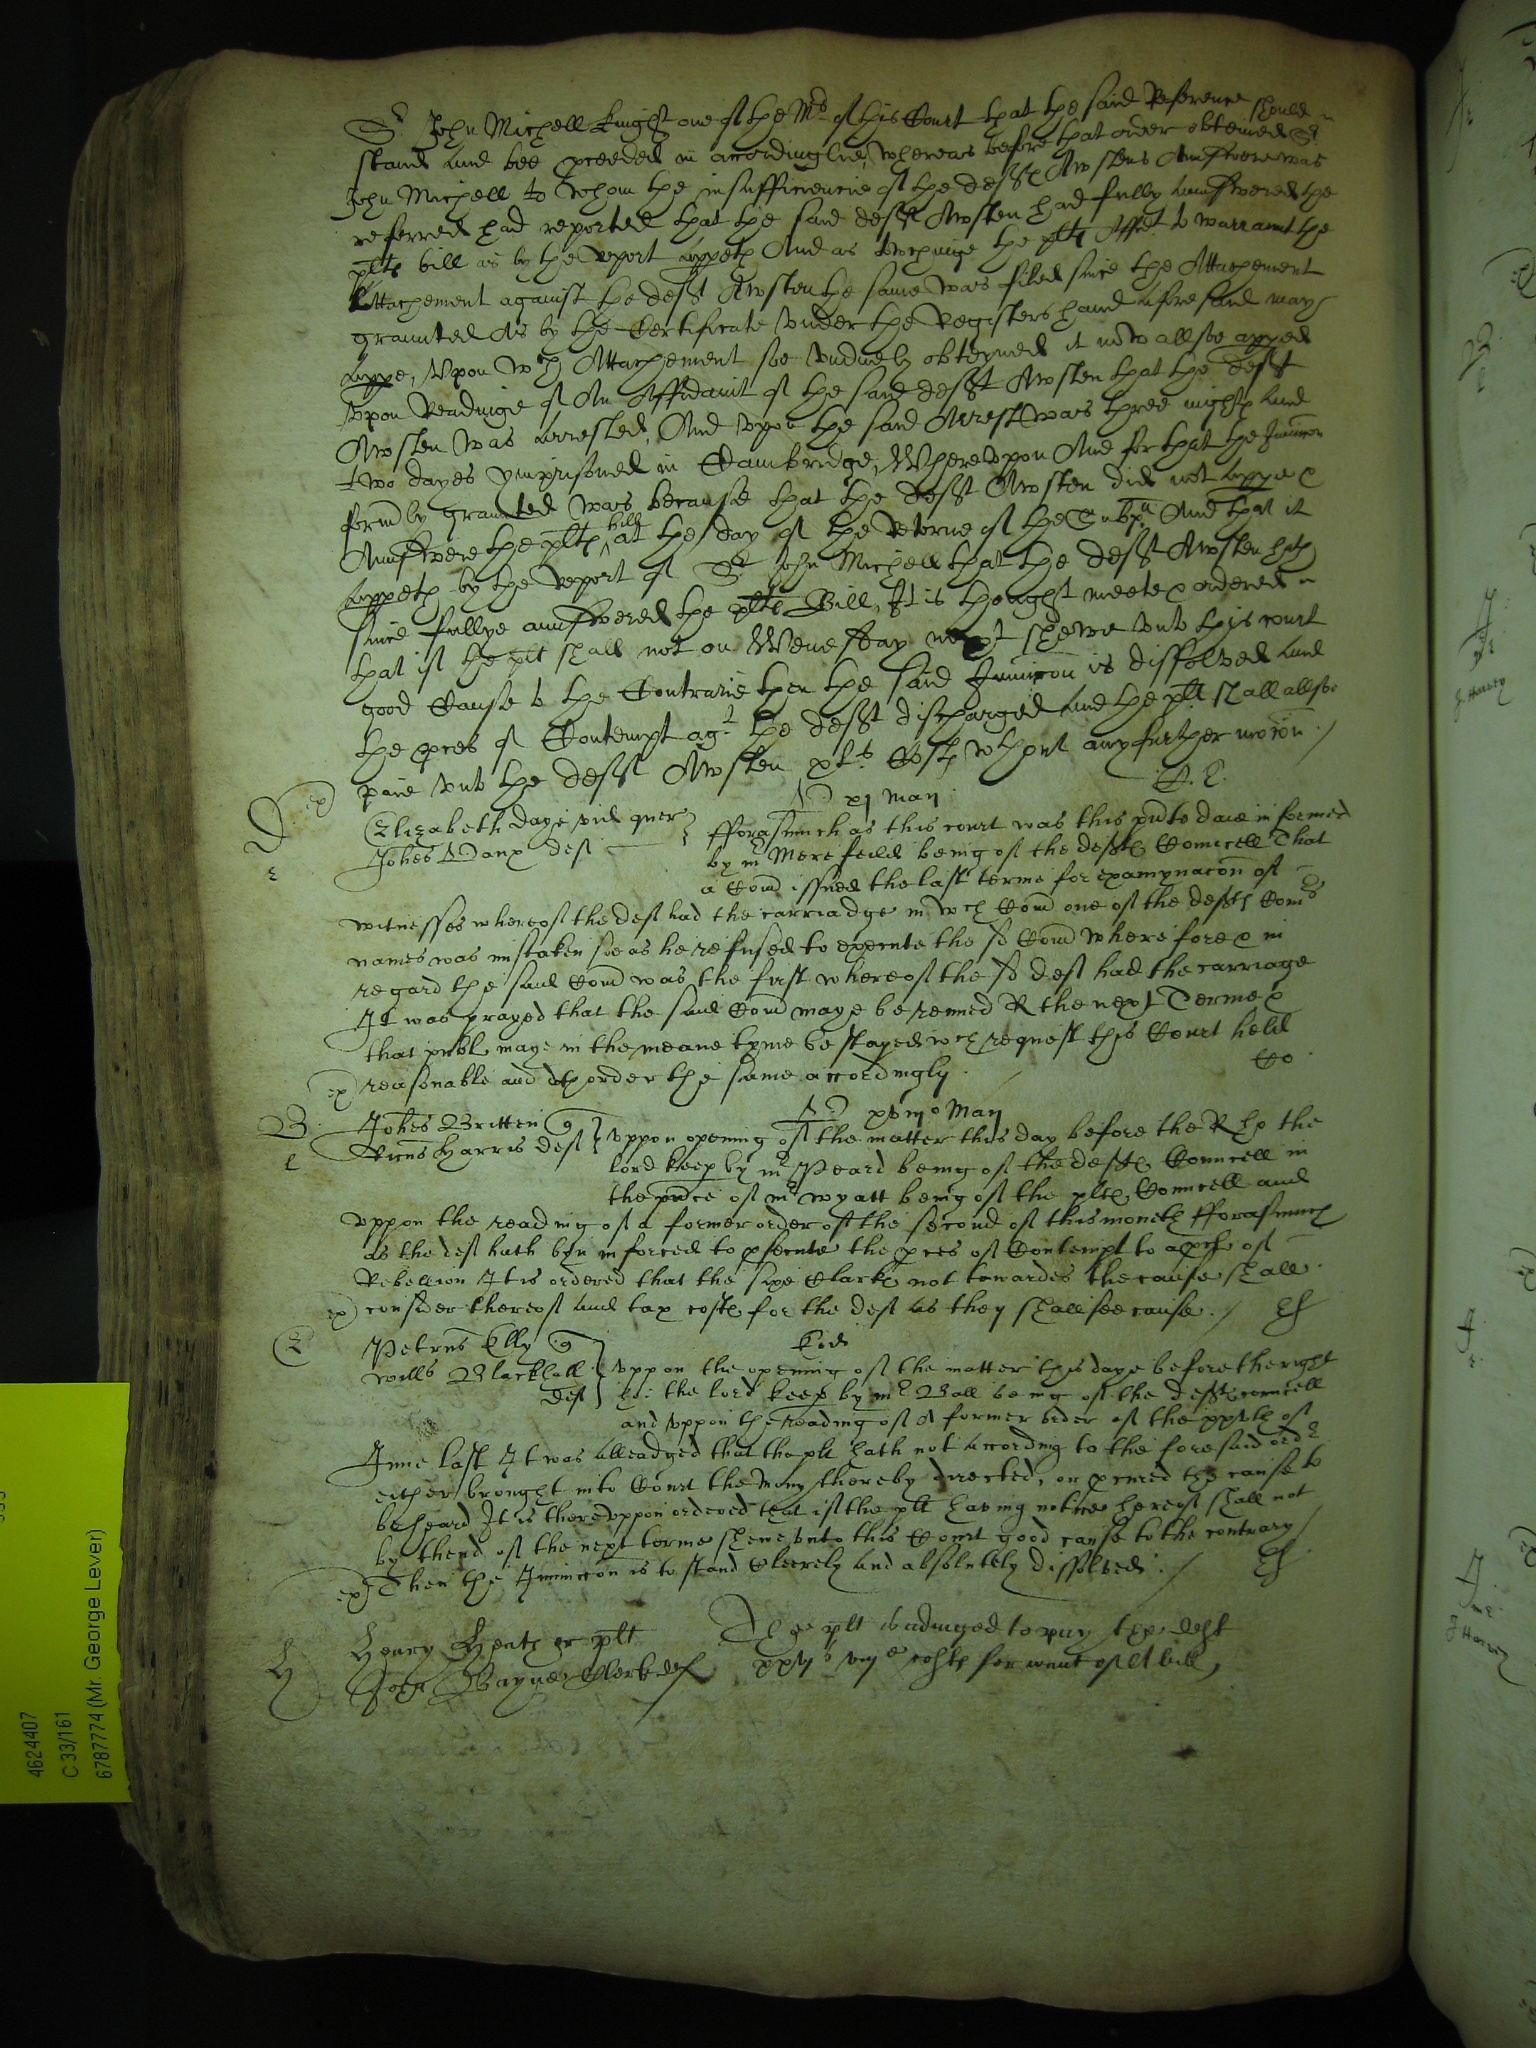 Sr John Michell knight one of the Mrs of this Court that the said Reference should
stand and bee pceeded in accordinglie, whereas before that order obteined Sr
John Michell to whom the insufficiencie of the deftes Awstens Answere was
referred had reported that the said deft Awsten had fully answered the
pltes bill as by the report appeth And as towchinge the pltes Affid to warrant the
Attachement against the deft Awsten the same was filed since the Attachement
graunted As by the Certificate under the Registers hand aforesaid may
appe, Upon wch Attachement soe unduely obteyned it now allsoe apped
upon Readinge of An Affidavit of the said deft Awsten that the deft
Awsten was arrested, And upon the said Arrest was three nightes and
two dayes ymprisoned in Cambridge, Whereupon And for that the Iniunccon
formly graunted was because that the deft Awsten did not appe &
Answere the pltes bill at the day of the Retorne of the Subpa And that it
appeth by the report of Sr John Michell that the deft Awsten hath
since fullye answered the pltes Bill, It is thought meete & ordered
that if the plt shall not on Wensday next shewe unto this court
good Cause to the Contrarie then the said Iniuncon is dissolved and
the pces of Contempt agt the deft discharged and the plt shall allsoe
paie unto the deft Awsten xls Costes wthout any further mocon
xj Maij
Elizabeth Daye vid quer
Johes Adanx def
fforasmuch as this court was this pnte daie informed
by mr Merefeild being of the deftes Councell That
a Comd issued the last terme for examynacon of
witnesses whereof the def had the carriadge in wch Comd one of the deftes Comrs
names was mistaken soe as he refused to execute the sd Comd wherefore & in
regard the said Comd was the first whereof the sd def had the carriage
It was prayed that the said Comd maye be renued R the next Terme &
that publ maye in the meane tyme be stayed wch request this Court held
reasonable and doth order the same accordingly
Co
xviijo Maij
Johes Britten q
Ricus Harris def
uppon opening of the matter this day before the R ho the
lord keep by mr Peard being of the deftes Councell in
the pnce of mr wyatt being of the pltes Councell and
uppon the reading of a former order of the second of this moneth fforasmuch
as the def hath byn inforced to psecute the pces of Contempt to a pcl of
Rebellion It is ordered that the sixe Clarkes not towardes the cause shall
consider thereof and tax costes for the def as they shall see cause
Petrus Elly q
Willus Blackhall
def
Eod
uppon the opening of the matter this daye before the right
ho: the lord keep by mr Ball being of the deftes councell
and uppon the reading of a former order of the xxvth of
June last It was alleadged that the plt hath not according to the foresaid ordr
either brought into Court the mony thereby directed, or pcured the cause to
be heard It is thereuppon ordered that if the plt having notice hereof shall not
by thend of the next terme shewe unto this Court good cause to the contrary
Then the Iniunccon is to stand cleerely and absolutely dissolved
Henry Heath gr plt
John Bayne Clerk def
The plt is adiuged to pay the deft
xxvjs viijd costes for want of A bill
4624407
C 33/161
6787774 (Mr. George Lever)